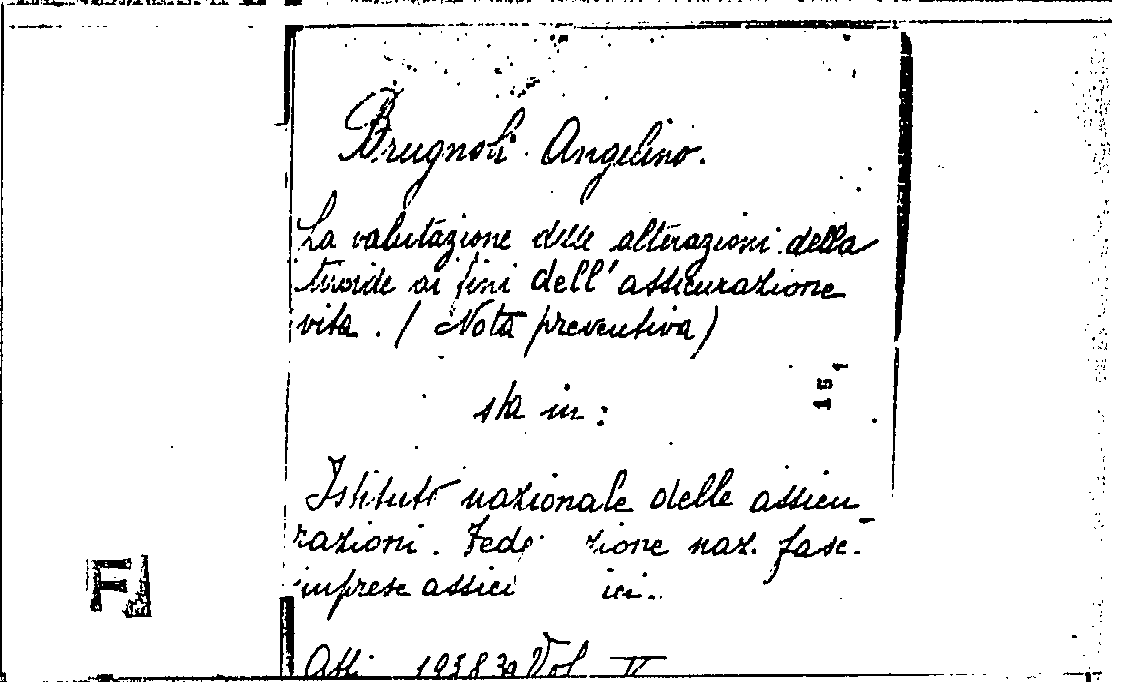 Brugnoli Angelino.
La valutazione delle alterazioni della
tiroide ai fini dell'assicurazione
vita. (Nota preventiva)
151
sta in:
Istituto nazionale delle assicu_
razioni. zione naz. fasc.
imprese
F
Atti Vol V